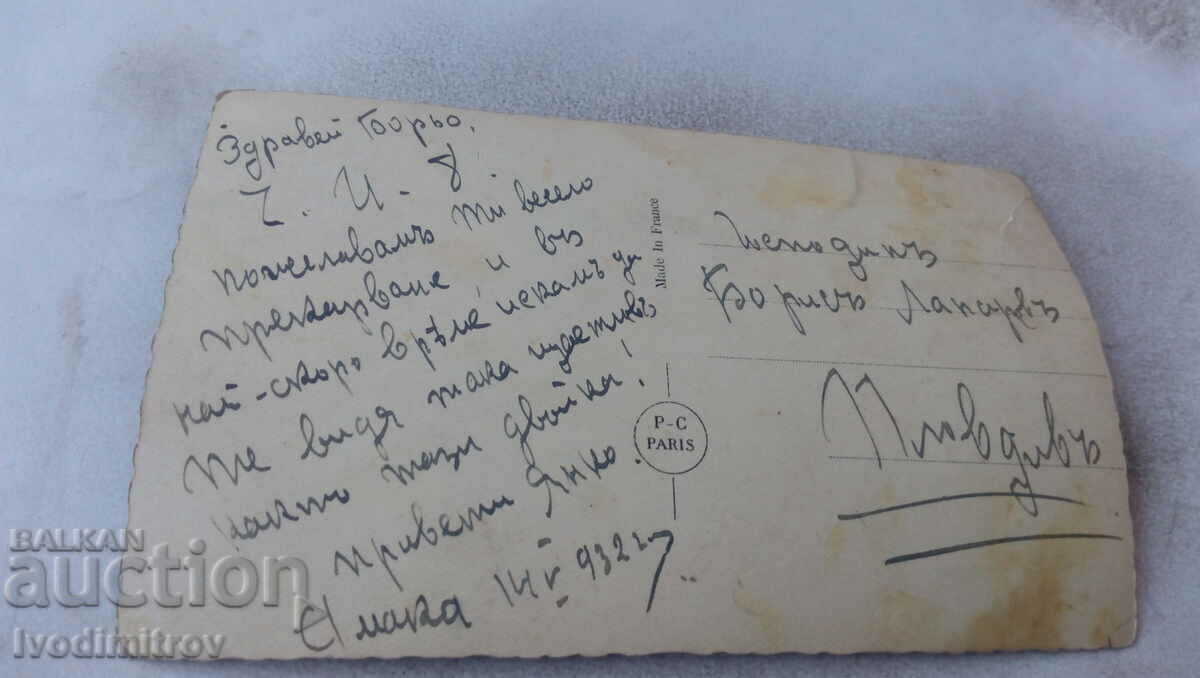 Здравей Борьо.
Ч. И. 8
пожелавамъ ти весело
прекарване, и въ
най-скоро врѣме искамъ да
те видя така щастливъ
както тази двойка!
привети Янко.
14 V 932 г.
Made In France
P-C
PARIS
Господинъ
Борисъ Лапаровъ
Пловдивъ
BALKAN
auction
Ivodimitrov